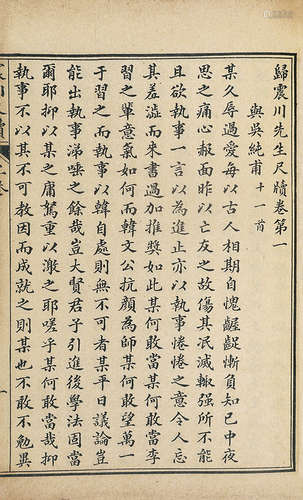 歸震川先生尺牘卷第一
與吳純甫十一首
某久辱過愛每以古人相期自愧齷齪慚負知己中夜
思之痛心赧面昨以亡友之故傷其泯滅輙强所不能
且欲執事一言以為進止亦以執事惓惓之意令人忘
其羞澁而來書過加推獎如此某何敢當某何敢當李
習之輩意氣如何而韓文公抗顏為師某何敢望萬一
于習之而執事以韓自處則無不可者某平日議論豈
能出執事涕唾之餘哉豈大賢君子引進後學法固當
爾耶抑以某之庸駑重以激之耶嗟乎某何敢當哉抑
執事不以其不可教因而成就之則某也不敢不勉異